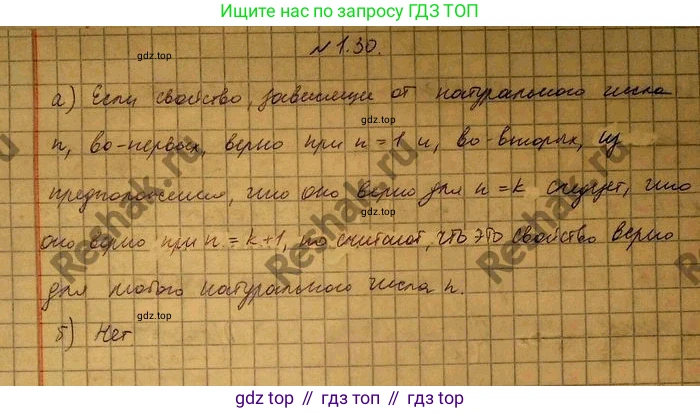 Ищите нас по запросу ГДЗ ТОП
№1.30.
gdz.top
а) Если свойство, зависящее от натурального числа
gdz.top
n, во-первых, верно при n = 1 и, во-вторых, из
предположения, что оно верно для n = k следует, что
gdz.top
оно верно при n = k+1, то считают, что это свойство верно
для любого натурального числа n.
gdz.top
б) Нет
gdz.top // гдз.топ // gdz.top
Reshak.ru
Reshak.ru
Reshak.ru